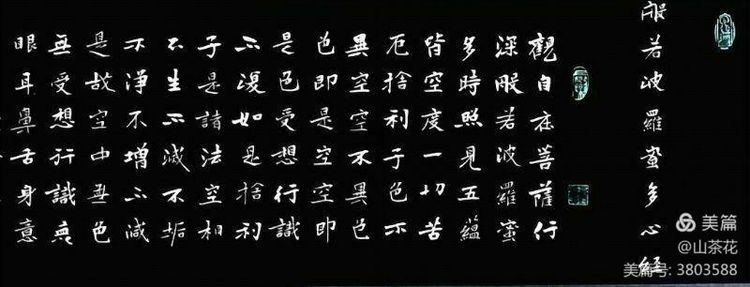 般若波羅蜜多心經
觀自在菩薩行
深般若波羅蜜
多時照見五蘊
皆空度一切苦
厄捨利子色不
異空空不異色
色即是空空即
是色受想行識
亦復如是捨利
子是諸法空相
不生不滅不垢
不淨不增不減
是故空中無色
無受想行識無
眼耳鼻舌身意
美篇
@山茶花
美篇号: 3803588